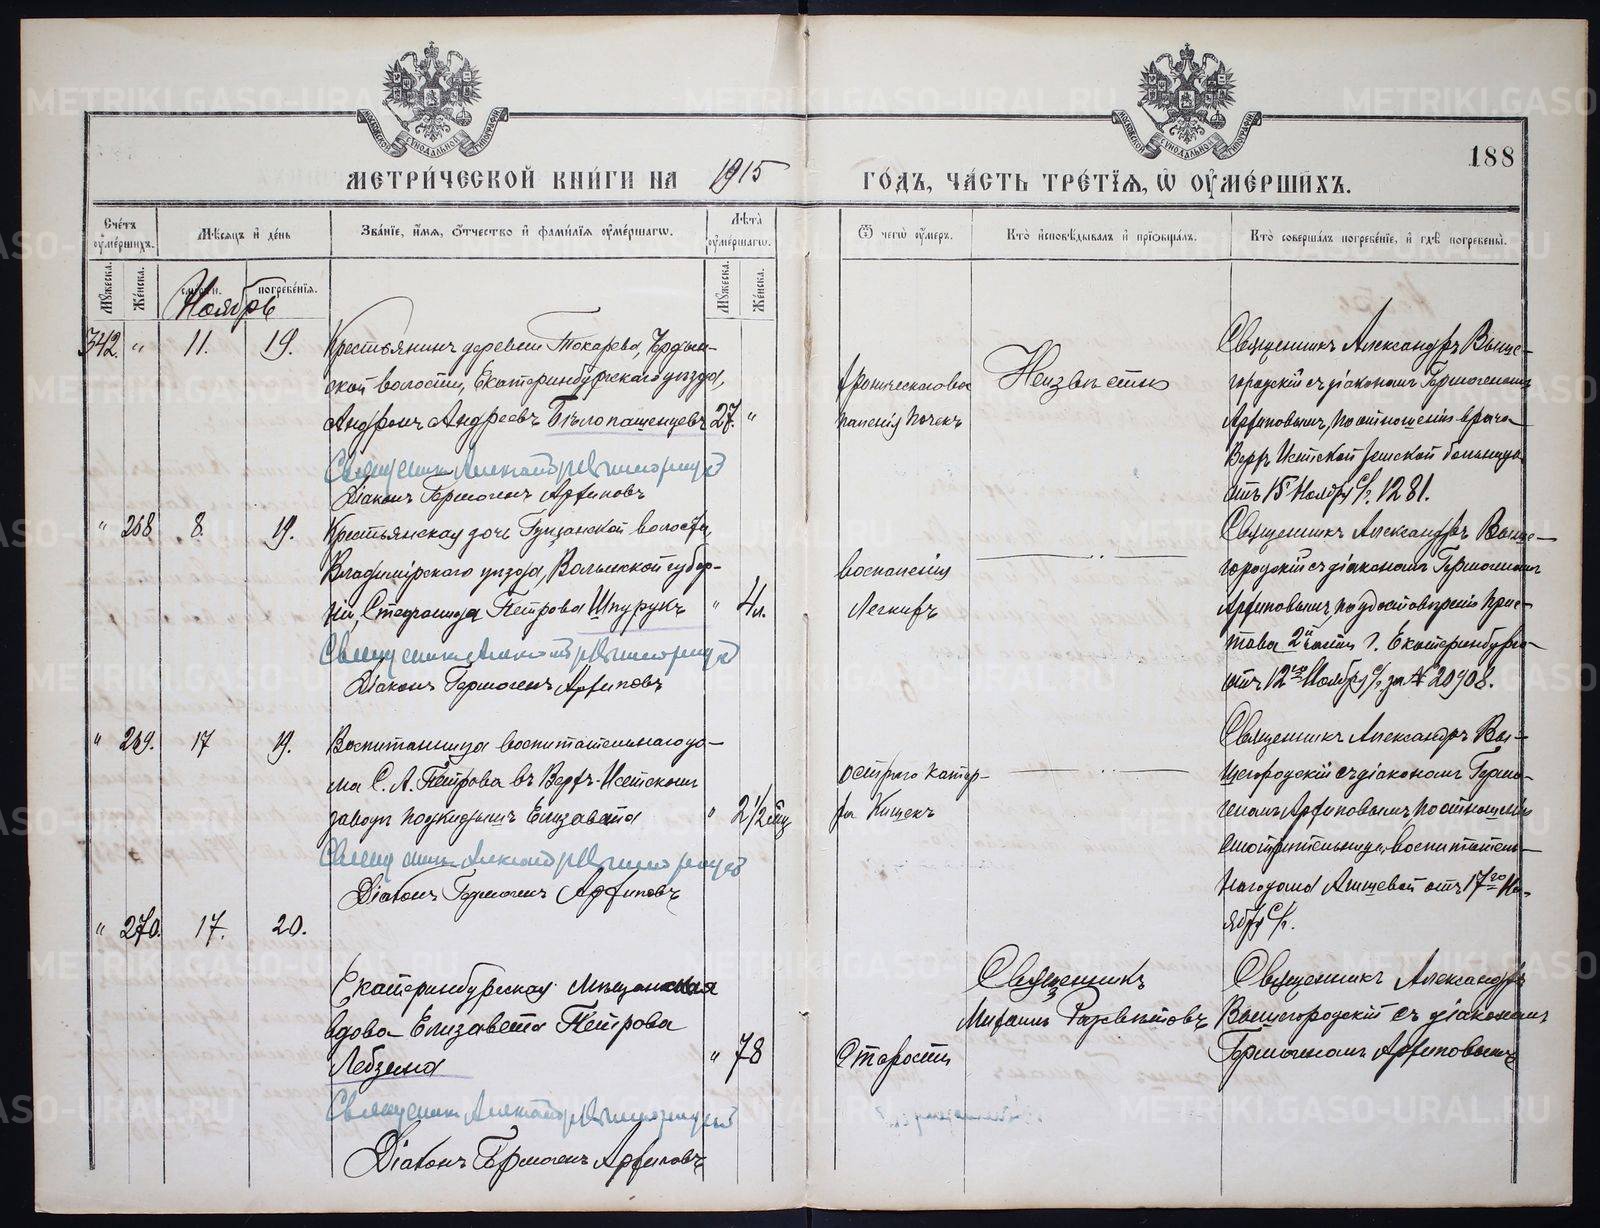 МЕТРИ́ЧЕСКОЙ КНИ́ГИ НА 1915
ГО́ДЪ, ЧА́СТЬ ТРЕ́ТІѦ, Ѿ ОУМЕ́РШИХЪ.
188
Сче́тъ оуме́ршихъ.
Мѣ́сѧцъ и де́нь
Зва́нїе, и́мѧ, о́тчество и фами́лїѧ оуме́ршагѡ.
Лѣ́та оуме́ршагѡ.
Ѿ чегѡ̀ оу́меръ.
Кто̀ исповѣ́дывалъ и прїѡбща́лъ.
Кто̀ соверша́лъ погребе́нїе, и гдѣ̀ погребены̀.
Му́жеска.
Же́нска.
сме́рти.
погребе́нїѧ.
Му́жеска.
Же́нска.
Ноябрь
342. " 11. 19.
Крестьянинъ деревни Токарева,
ской волости, Екатеринбургскаго уѣзда,
Андронъ Андреевъ Бѣлопашенцевъ 27. "
Священникъ Александръ Вышегородскій
Діаконъ Гермогенъ Архиповъ
хроническаго вос
паленія почекъ
Неизвѣстно
Священникъ Александръ Выше-
городскій съ діакономъ Гермогеномъ
Архиповымъ, по отношенію врача
Верхъ Исетской земской больницы
отъ 15 Ноября с/г. 1281.
" 268 8. 19.
Крестьянская дочь волости,
Владимірскаго уѣзда, Волынской губер-
ніи, Стефанида Петрова Шпурукъ " 4 л.
Священникъ Александръ Вышегородскій
Діаконъ Гермогенъ Архиповъ
воспаленія
Легкихъ
— " —
Священникъ Александръ Выше-
городскій съ діакономъ Гермогеномъ
Архиповымъ, по удостовѣренію Прис-
тава 2й части г. Екатеринбурга
отъ 12го Ноября с/г за № 20908.
" 269. 17 19.
Воспитанница воспитательнаго до-
ма С. А. Петрова въ Верхъ-Исетскомъ
заводѣ подкидышъ Елизавета " 2½ мѣс
Священникъ Александръ Вышегородскій
Діаконъ Гермогенъ Архиповъ
остраго катар-
ра Кишекъ
— " —
Священникъ Александръ Вы-
шегородскій съ діакономъ Гермо-
геномъ Архиповымъ, по отношенію
смотрительницы воспитатель-
наго дома отъ 17го Но-
ября с/г.
" 270. 17. 20.
Екатеринбургская мѣщанская
вдова Елизавета Петрова
Лебзина " 78
Священникъ Александръ Вышегородскій
Діаконъ Гермогенъ Архиповъ
Старости
Священникъ
Михаилъ
Священникъ Александръ
Вышегородскій съ діакономъ
Гермогеномъ Архиповымъ
METRIKI.GASO-URAL.RU